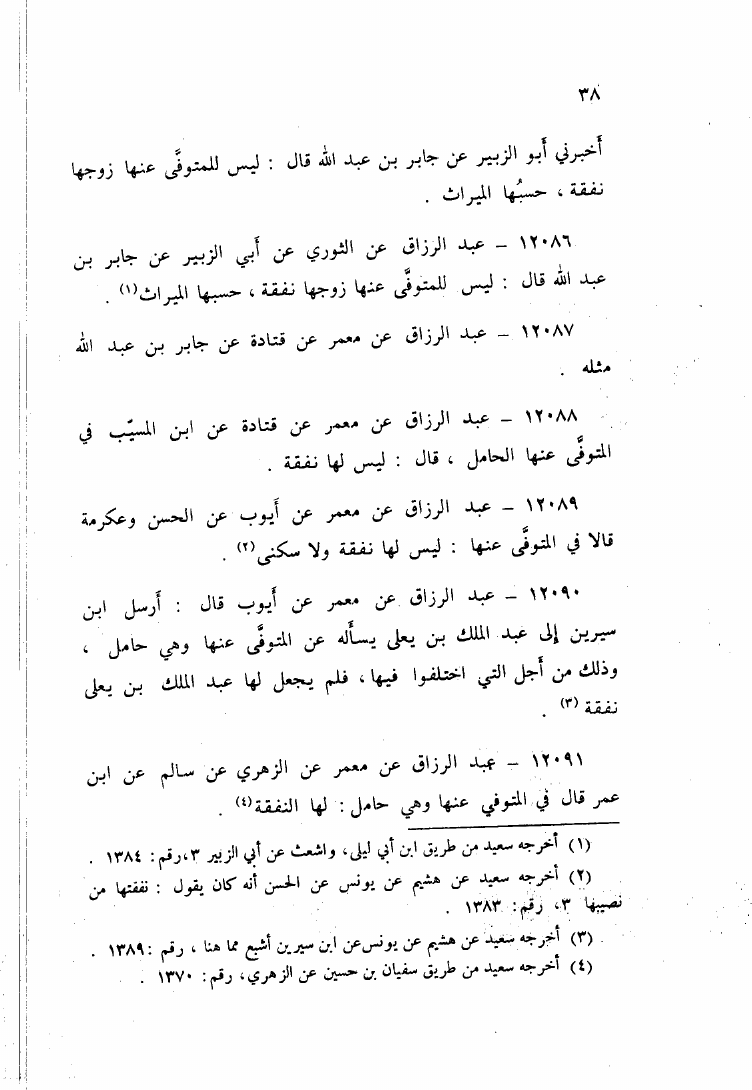 ٣٨
أخبرني أبو الزبير عن جابر بن عبد الله قال : ليس للمتوفَّى عنها زوجها
نفقة ، حسبُها الميراث .
١٢٠٨٦ – عبد الرزاق عن الثوري عن أبي الزبير عن جابر بن
عبد الله قال : ليس للمتوفَّى عنها زوجها نفقة ، حسبها الميراث(١) .
١٢٠٨٧ – عبد الرزاق عن معمر عن قتادة عن جابر بن عبد الله
مثله .
١٢٠٨٨ – عبد الرزاق عن معمر عن قتادة عن ابن المسيّب في
المتوفَّى عنها الحامل ، قال : ليس لها نفقة .
١٢٠٨٩ – عبد الرزاق عن معمر عن أيوب عن الحسن وعكرمة
قالا في المتوفَّى عنها : ليس لها نفقة ولا سكنى(٢) .
١٢٠٩٠ – عبد الرزاق عن معمر عن أيوب قال : أرسل ابن
سيرين إلى عبد الملك بن يعلى يسأله عن المتوفَّى عنها وهي حامل ،
وذلك من أجل التي اختلفوا فيها ، فلم يجعل لها عبد الملك بن يعلى
نفقة (٣) .
١٢٠٩١ – عبد الرزاق عن معمر عن الزهري عن سالم عن ابن
عمر قال في المتوفي عنها وهي حامل : لها النفقة(٤) .
(١) أخرجه سعيد من طريق ابن أبي ليلى، واشعث عن أبي الزبير ٣،رقم: ١٣٨٤ .
(٢) أخرجه سعيد عن هشيم عن يونس عن الحسن أنه كان يقول : نفقتها من
نصيبها ٣، رقم: ١٣٨٣ .
(٣) أخرجه سعيد عن هشيم عن يونس عن ابن سيرين أشبع مما هنا ، رقم :١٣٨٩ .
(٤) أخرجه سعيد من طريق سفيان بن حسين عن الزهري، رقم: ١٣٧٠ .